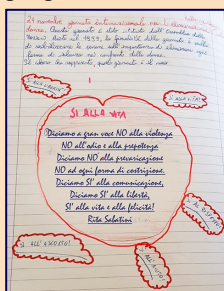 25 novembre giornata internazionale per l'eliminazione
donne. Questa giornata è stata istituita dall'Assemblea delle
nel 1999, la finalità della giornata è quella
di sensibilizzare le persone sull'importanza di eliminare ogni
forma di violenza nei confronti delle donne.
SI ALLA LIBERTÀ!
SI ALLA VITA!
SI ALLA VITA
Diciamo a gran voce NO alla violenza
NO all'odio e alla prepotenza
Diciamo NO alla prevaricazione
NO ad ogni forma di costrizione.
Diciamo SI' alla comunicazione,
Diciamo SI' alla libertà,
SI' alla vita e alla felicità!
Rita Sabatini
SI AL RISPETTO!
SI ALL'ASCOLTO!